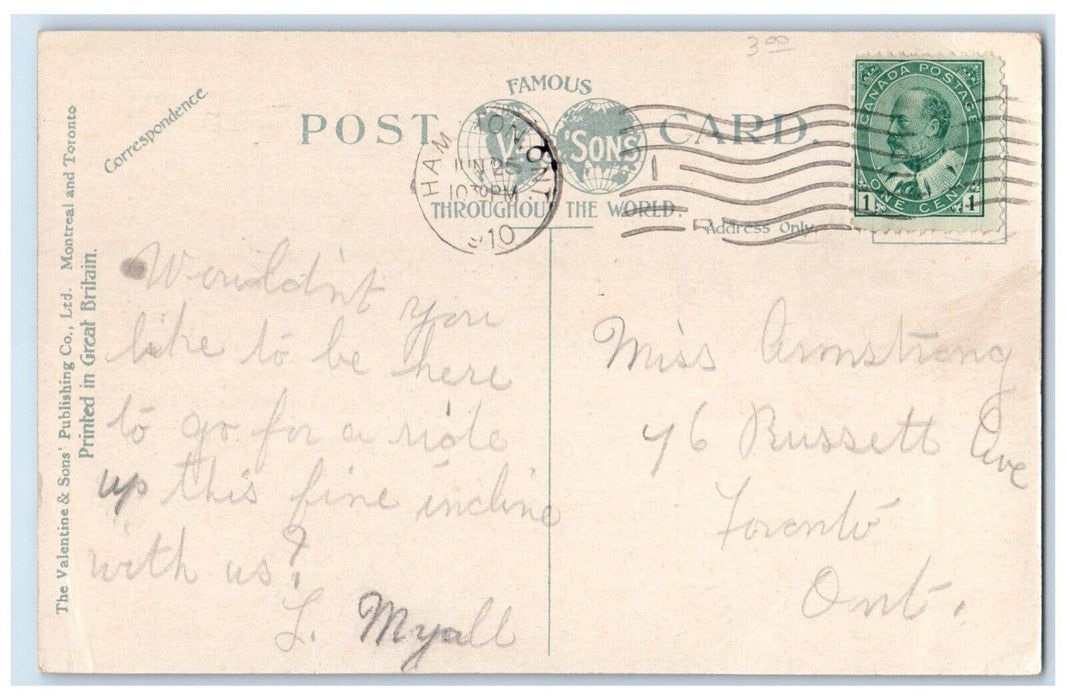 3 00
FAMOUS
POST CARD.
V. & SONS
THROUGHOUT THE WORLD.
Correspondence.
Address Only.
HAMILTON, ONT.
JUN 25
10 30 PM
910
CANADA POSTAGE
1 ONE CENT 1
The Valentine & Sons' Publishing Co., Ltd. Montreal and Toronto
Printed in Great Britain.
Wouldn't you
like to be here
to go for a ride
up this fine incline
with us?
L. Myall
Miss Armstrong
46 Russett Ave
Toronto
Ont.